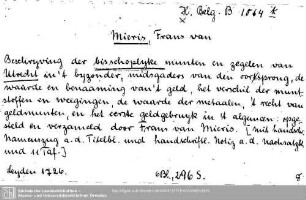 H. Belg. B 1064 k
Mieris, Frans van
Beschryving der bisschoplyke munten en zegelen van
Utrecht in 't byzonder, midsgaders van den oorsprong, de
waarde en benaaming van 't geld, het verschil der munt-
stoffen en weegingen, de waarde der metaalen, 't recht van
geldmunten, en het eerste geldgebruyk in 't algemeen: opge-
steld en verzameld door Frans van Mieris. [mit handschr.
Namenszug a. d. Titelbl. und handschriftl. Notiz a. d.
und 11 Taf.]
Leyden 1726. 6 Bl., 296 S.